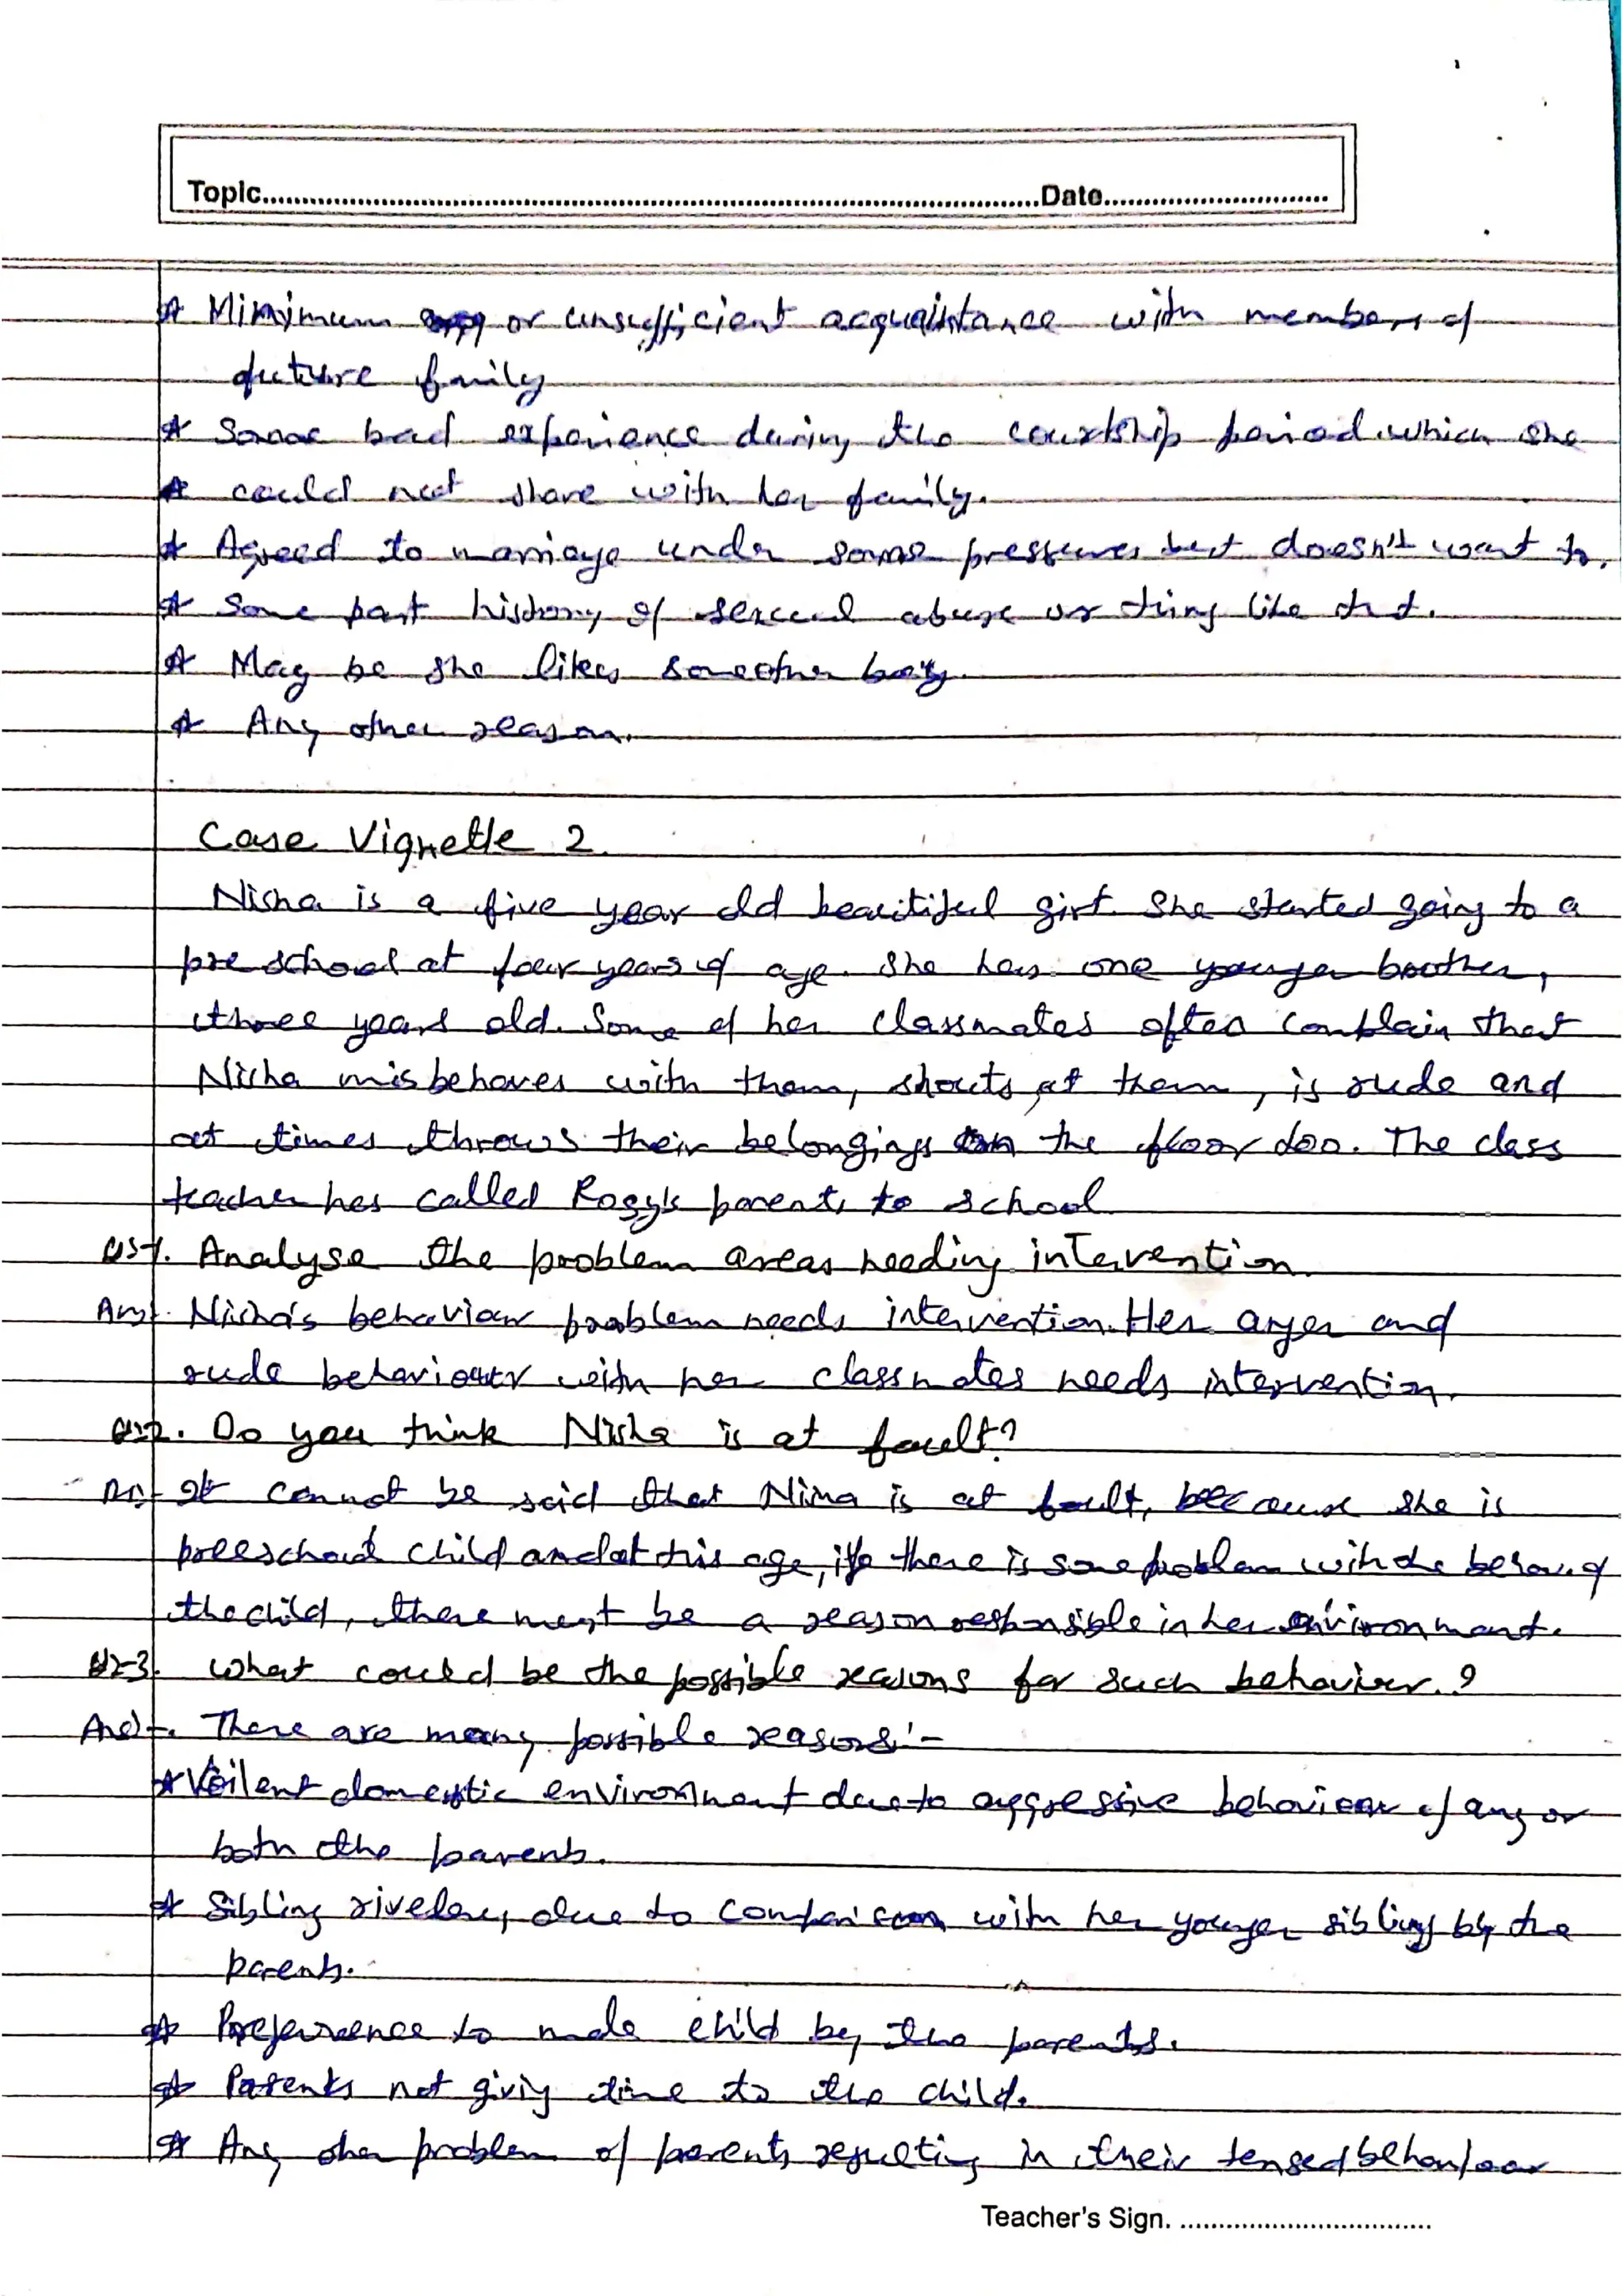 Topic..........Date..........
★ Minimum or unsufficient acquaintance with members of
future family
★ Some bad experience during the courtship period which she
★ could not share with her family.
★ Agreed to marriage under some pressures but doesn't want to.
★ Some past history of sexual abuse or thing like that.
★ May be she likes someother boy.
★ Any other reason.
Case Vignette 2.
Nisha is a five year old beautiful girl. She started going to a
pre school at four years of age. She has one younger brother,
three years old. Some of her classmates often complain that
Nisha misbehaves with them, shouts at them, is rude and
at times throws their belongings on the floor too. The class
teacher has called Rosy's parents to school
QS-1. Analyse the problem areas needing intervention.
Ans-. Nisha's behaviour problem needs intervention. Her anger and
rude behaviour with her classmates needs intervention.
QS-2. Do you think Nisha is at fault?
Ans- It cannot be said that Nisha is at fault, because she is
preeschool child and at this age, if there is some problem with the behav. of
the child, there must be a reason responsible in her environment.
QS-3. What could be the possible reasons for such behaviour.?
Ans-. There are many possible reasons:-
★ Voilent domestic environment due to aggressive behaviour of any or
both the parents.
★ Sibling rivelery due to comparison with her younger sibling by the
parents.
★ Preferrence to male child by the parents.
★ Parents not giving time to the child.
★ Any other problem of parents resulting in their tensed behaviour
Teacher's Sign. ..........